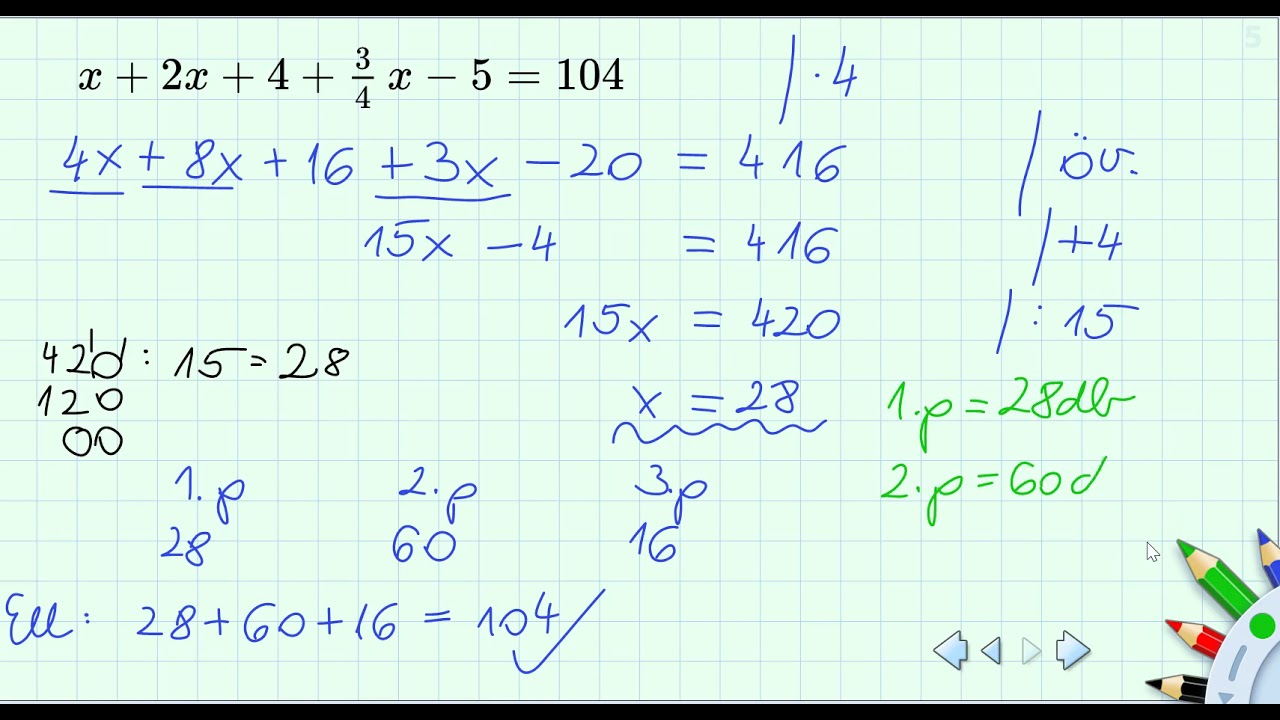 5
x + 2x + 4 + 3/4 x − 5 = 104 | · 4
4x + 8x + 16 + 3x − 20 = 416 | öv.
15x − 4 = 416 | +4
15x = 420 | : 15
420 : 15 = 28
120
00
x = 28
1. p = 28db
2. p = 60d
1. p 2. p 3. p
28 60 16
Ell: 28 + 60 + 16 = 104 ✓